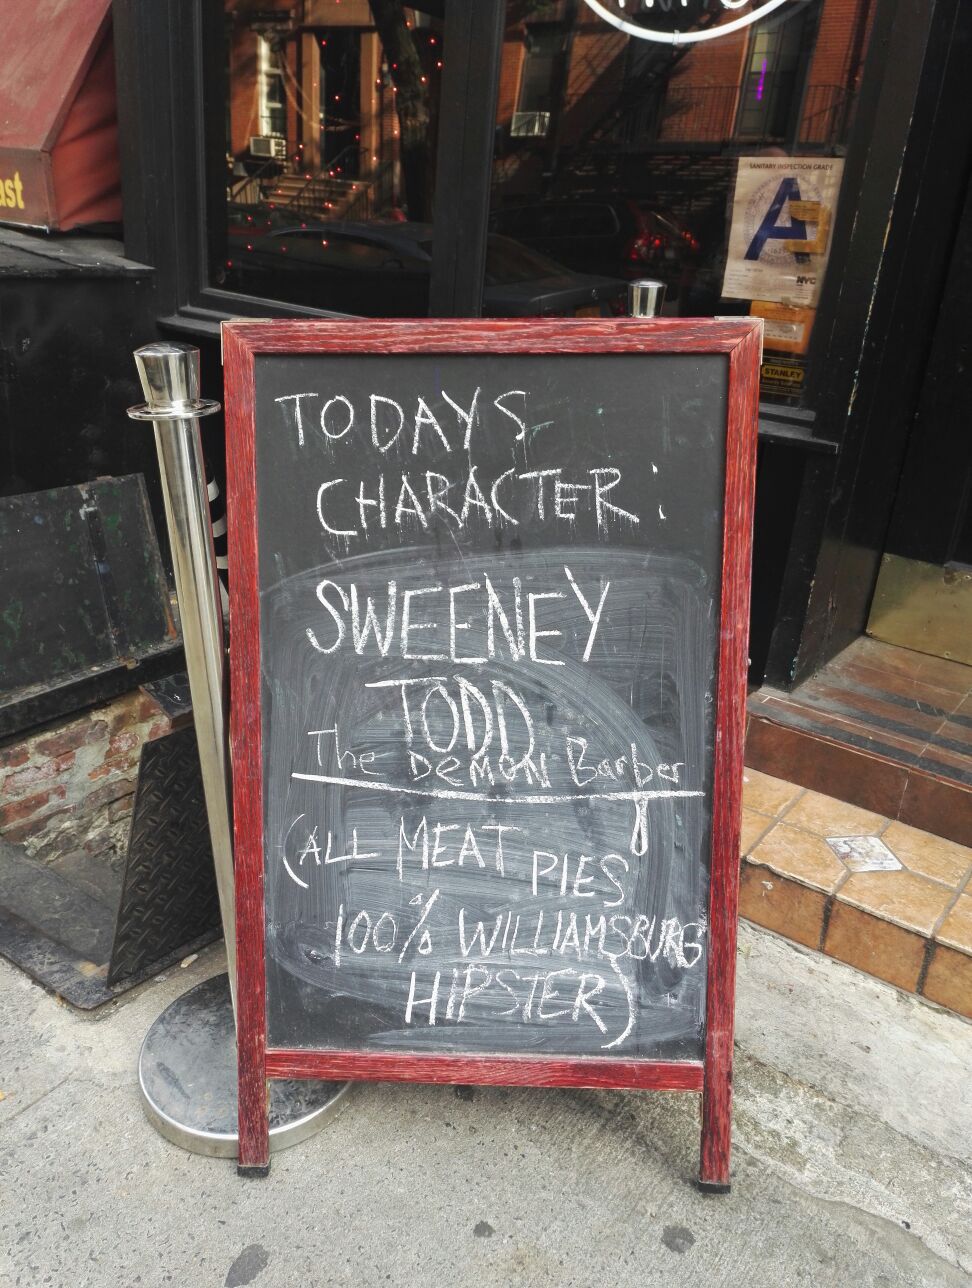 ast
SANITARY INSPECTION GRADE
A
NYC
STANLEY
TODAYS
CHARACTER:
SWEENEY
TODD
The DEMON Barber
(ALL MEAT PIES
100% WILLIAMSBURG
HIPSTER)